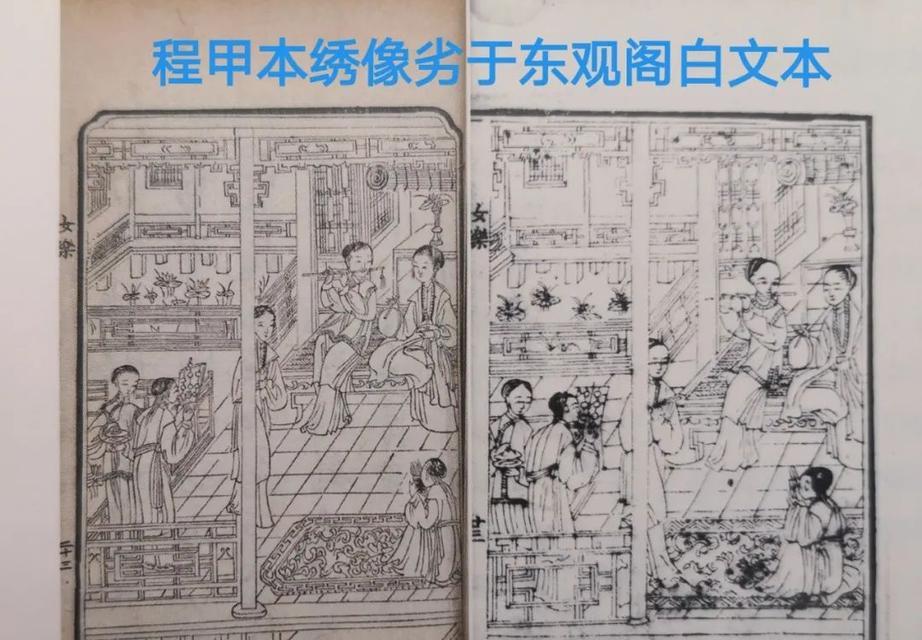 程甲本绣像劣于东观阁白文本
女樂
二十三
女樂
廿三